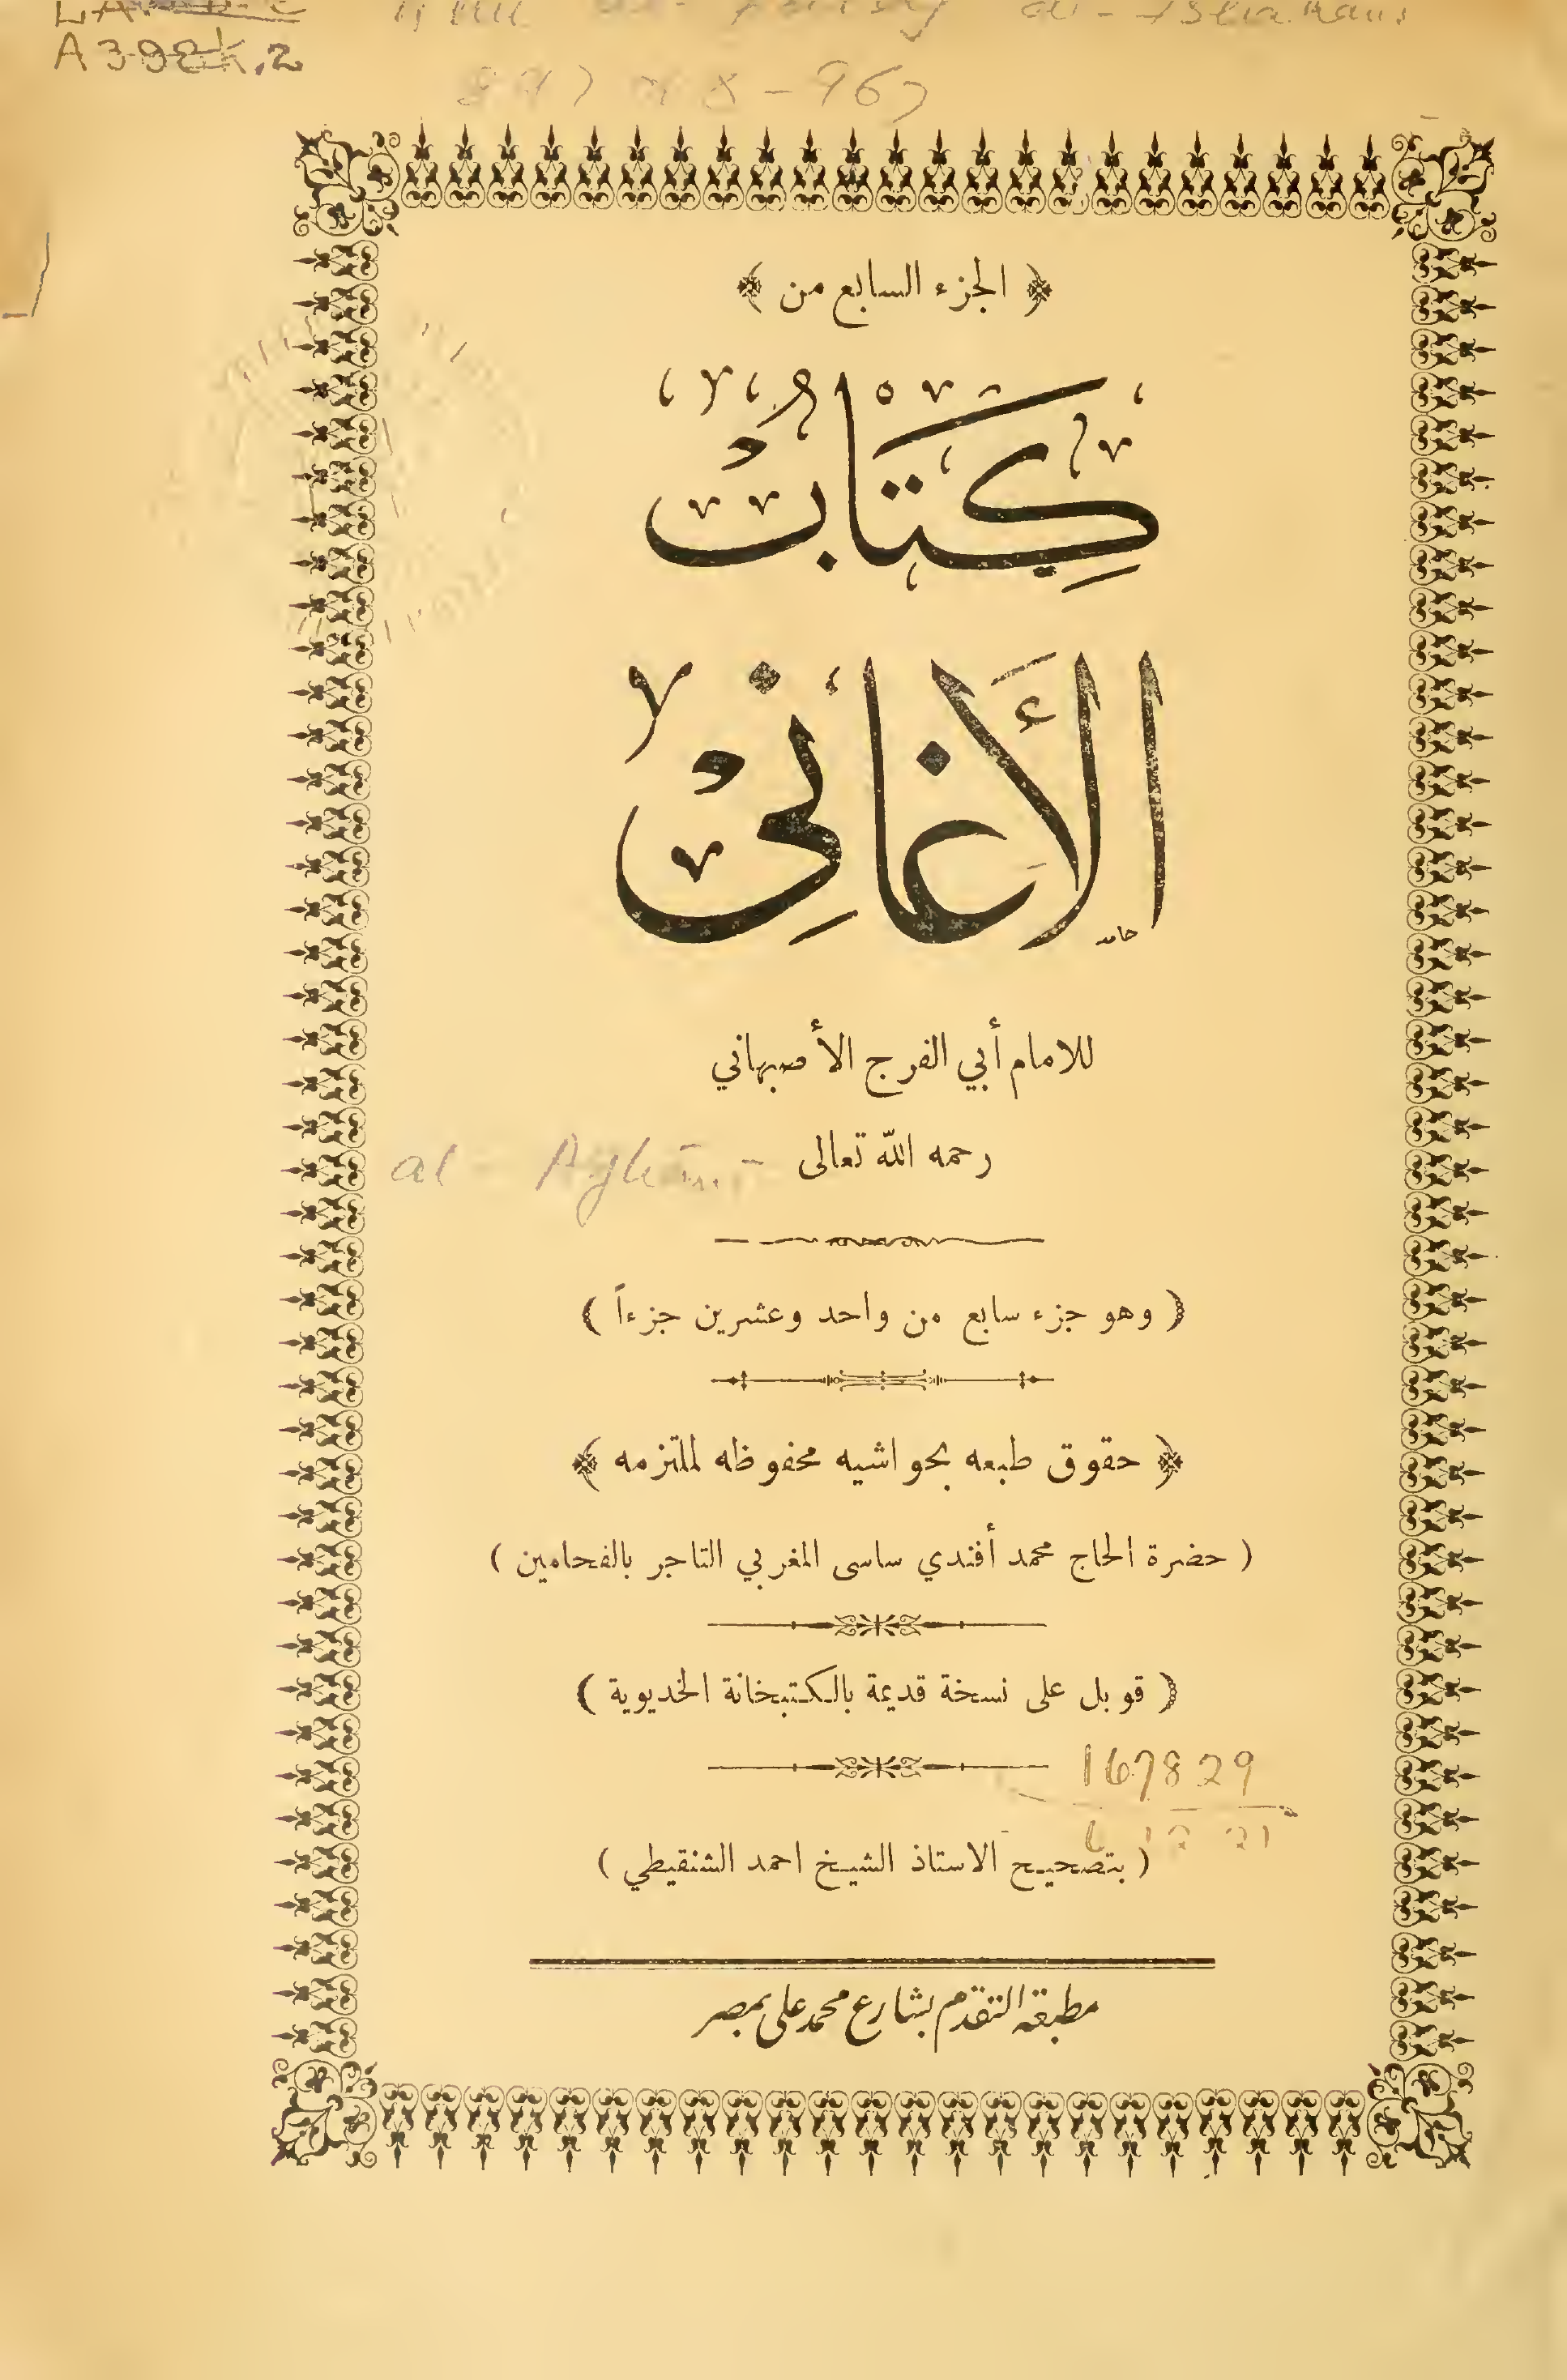 A 392k.2
- 967
﴿ الجزء السابع من ﴾
كِتَابُ
الأَغَانِيْ
حامد
للامام أبي الفرج الأصبهاني
رحمه الله تعالى
al - Aghānī -
( وهو جزء سابع من واحد وعشرين جزءاً )
﴿ حقوق طبعه بحواشيه محفوظه لملتزمه ﴾
( حضرة الحاج محمد أفندي ساسى المغربي التاجر بالفحامين )
( قوبل على نسخة قديمة بالكتبخانة الخديوية )
167829
( بتصحيح الاستاذ الشيخ احمد الشنقيطي )
مطبعة التقدم بشارع محمد على بمصر